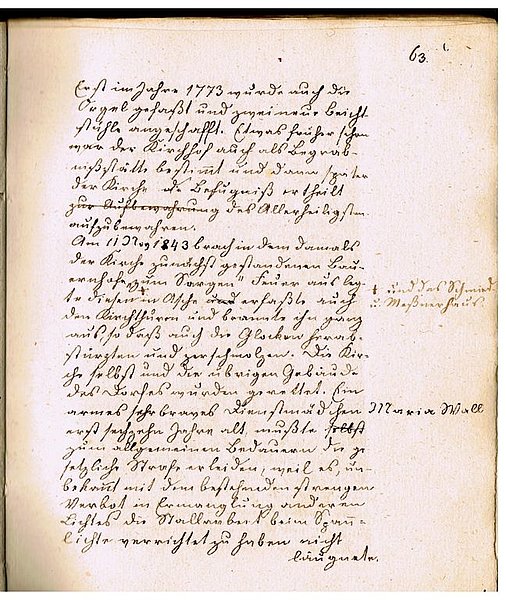 63.
Erst im Jahre 1773 wurde auch die
Orgel gefaßt und zwei neue Beicht
stühle angeschafft. Etwas früher schon
war der Kirchhof auch als Begräb-
nißstätte bestimt und dann später
der Kirche die Befugniß ertheilt
zur Aufbewahrung des Allerheiligsten
aufzubewahren.
Am 11 May 1843 brach in dem damals
der Kirche zunächst gestandenen Bau-
ernhofe "zum Sargen" Feuer aus leg-
te diesen in Asche und erfaßte auch
den Kirchthurm und brannte ihn ganz
aus, so daß auch die Glocken herab-
stürzten und zerschmolzen. Die Kir-
che selbst und die übrigen Gebäude
des Dorfes wurden gerettet. Ein
armes sehr braves Dienstmädchen Maria Wall
erst sechzehn Jahre alt, mußte selbst
zum allgemeinen Bedauern die ge
setzliche Strafe erleiden, weil es, un-
bekannt mit dem bestehenden strengen
Verbot in Ermanglung anderen
Lichtes die Stallarbeit beim Span-
lichte verrichtet zu haben nicht
läugnete.
+ und das Schmied
u. Meßnerhaus.